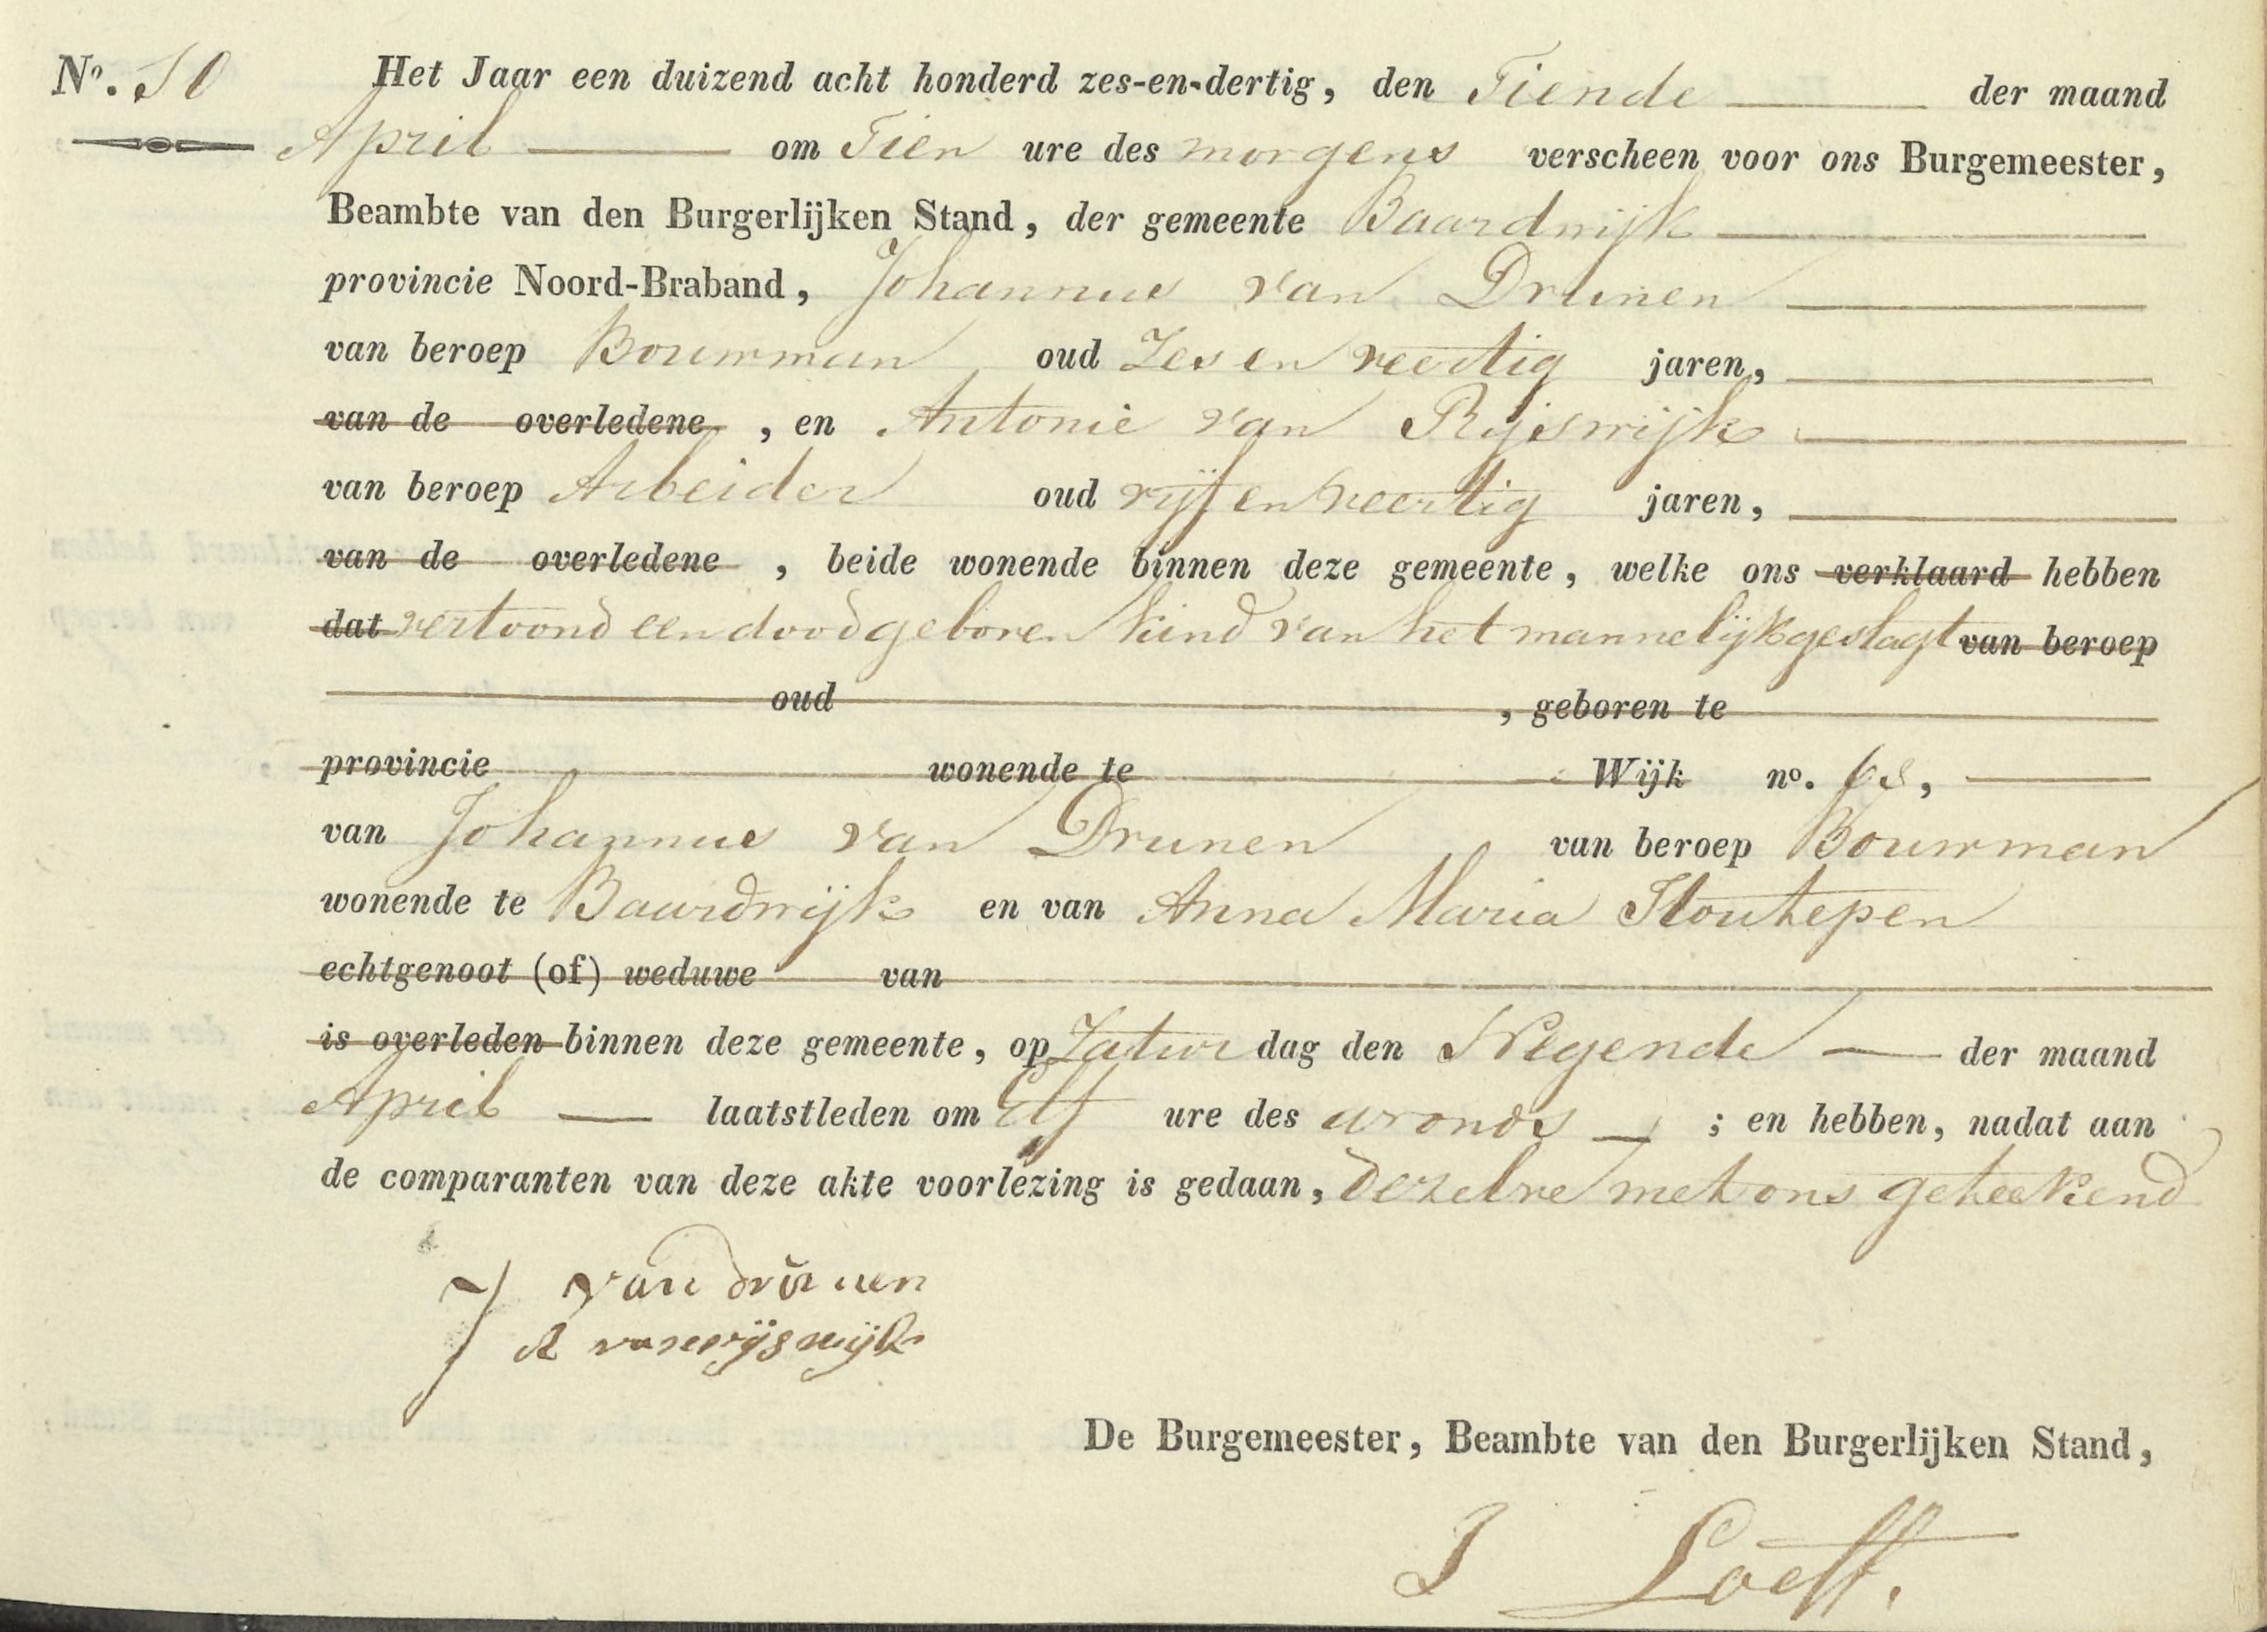 No. 10 Het Jaar een duizend acht honderd zes-en-dertig, den Tiende der maand
April om Tien ure des morgens verscheen voor ons Burgemeester,
Beambte van den Burgerlijken Stand, der gemeente Baardwijk
provincie Noord-Braband, Johannus van Drunen
van beroep Bouwman oud Zes en veertig jaren,
van de overledene, en Antonie van Rijswijk
van beroep Arbeider oud vijf en veertig jaren,
van de overledene, beide wonende binnen deze gemeente, welke ons verklaard hebben
dat vertoond een dood geboren kind van het mannelijk geslagt van beroep
oud , geboren te
provincie wonende te Wijk no. 68,
van Johannus van Drunen van beroep Bouwman
wonende te Baardwijk en van Anna Maria Kloutepen
echtgenoot (of) weduwe van
is overleden binnen deze gemeente, op Zatur dag den Negende der maand
April laatstleden om Elf ure des avonds ; en hebben, nadat aan
de comparanten van deze akte voorlezing is gedaan, dezelve met ons geteekend
J van drunen
A van rijswijk
De Burgemeester, Beambte van den Burgerlijken Stand,
J Loeff.